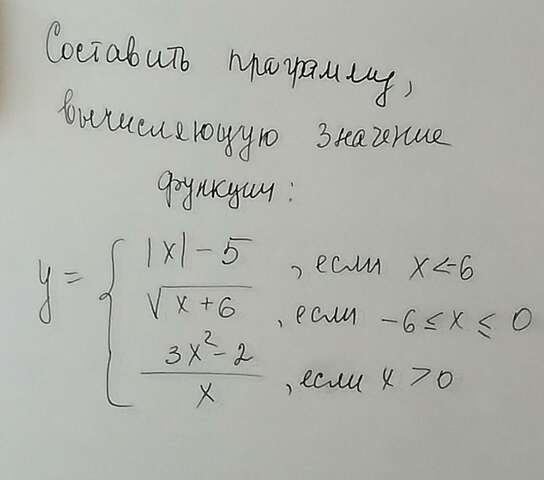 Составить программу,
вычисляющую значение
функции:
y = { |x| - 5, если x < -6
√(x + 6), если -6 ≤ x ≤ 0
(3x² - 2)/x, если x > 0